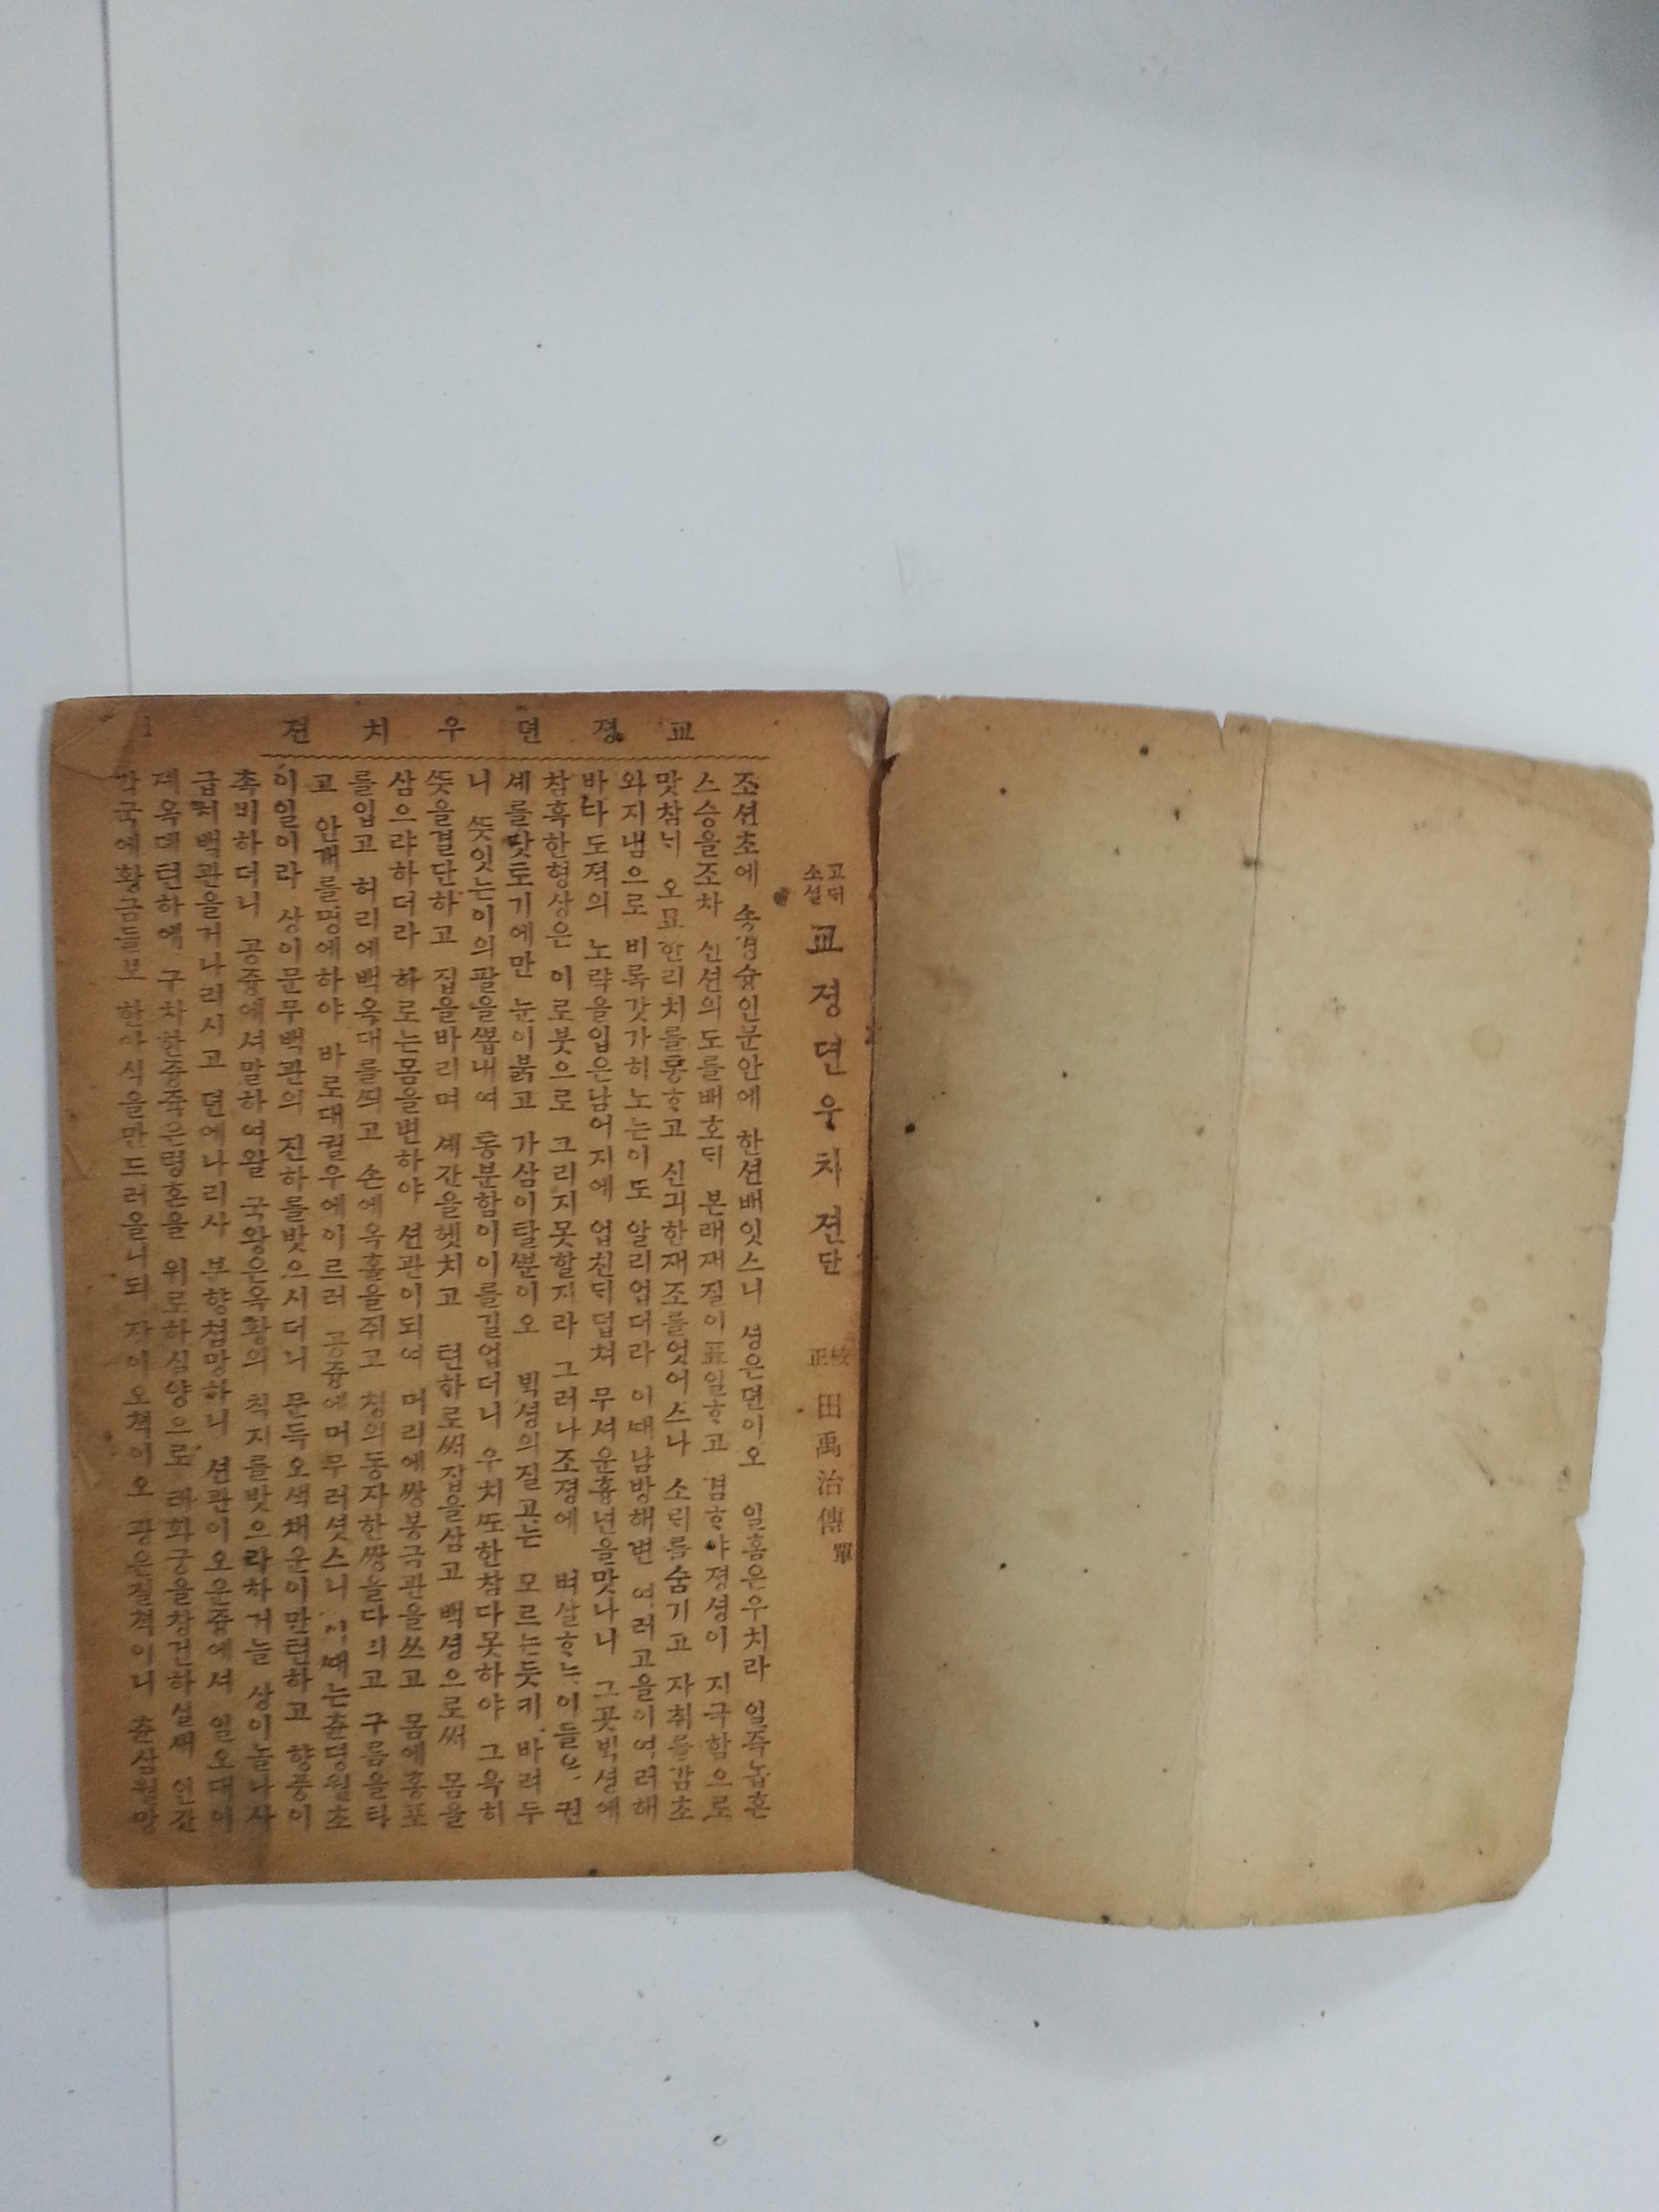 교졍뎐우치젼
1
고ᄃᆡ소셜 교졍뎐우치젼단 校正 田禹治傳 單
조션초에 숑경슝인문안에 한션배잇스니 셩은뎐이오 일홈은우치라 일즉놉흔
스승을조차 신션의도를배호ᄃᆡ 본래재질이표일ᄒᆞ고 겸ᄒᆞ야졍셩이 지극함으로
맛참ᄂᆡ 오묘한리치를통ᄒᆞ고 신긔한재조를엇어스나 소ᄅᆡ를숨기고 자취를감초
와지냄으로 비록갓가히노는이도 알리업더라 이때남방해변 여러고을이여러해
바다도젹의 노략을입은남어지에 업친ᄃᆡ덥쳐 무셔운흉년을맛나니 그곳ᄇᆡᆨ셩에
참혹한형상은 이로붓으로 그리지못할지라 그러나조졍에 벼살ᄒᆞᄂᆞᆫ이들은 권
셰를닷토기에만 눈이붉고 가삼이탈ᄲᅮᆫ이오 ᄇᆡᆨ셩의질고는 모르는듯키 바려두
니 ᄯᅳᆺ잇는이의팔을ᄲᅩᆸ내여 통분함이이를길업더니 우치ᄯᅩ한참다못하야 그윽히
ᄯᅳᆺ을결단하고 집을바리며 셰간을헷치고 텬하로써집을삼고 백셩으로써 몸을
삼으랴하더라 하로는몸을변하야 션관이되여 머리에쌍봉금관을쓰고 몸에홍포
를입고 허리에백옥대를ᄯᅴ고 손에옥홀을쥐고 쳥의동자한쌍을다리고 구름을타
고 안개를멍에하야 바로대궐우에이르러 공즁에머무러셧스니 이ᄯᅢ는츈뎡월초
이일이라 상이문무백관의 진하를밧으시더니 문득오색채운이만텬하고 향풍이
촉비하더니 공즁에셔말하여왈 국왕은옥황의 칙지를밧으라하거늘 상이놀나사
급히백관을거나리시고 뎐에나리사 부향쳠망하니 션관이오운즁에셔 일오대이
졔옥뎨텬하에 구차한즁죽은령혼을 위로하실양으로 태화궁을창건하실새 인간
각국에황금들보 한아식을만드러올니되 자이오쳑이오 광은칠쳑이니 츈삼월망